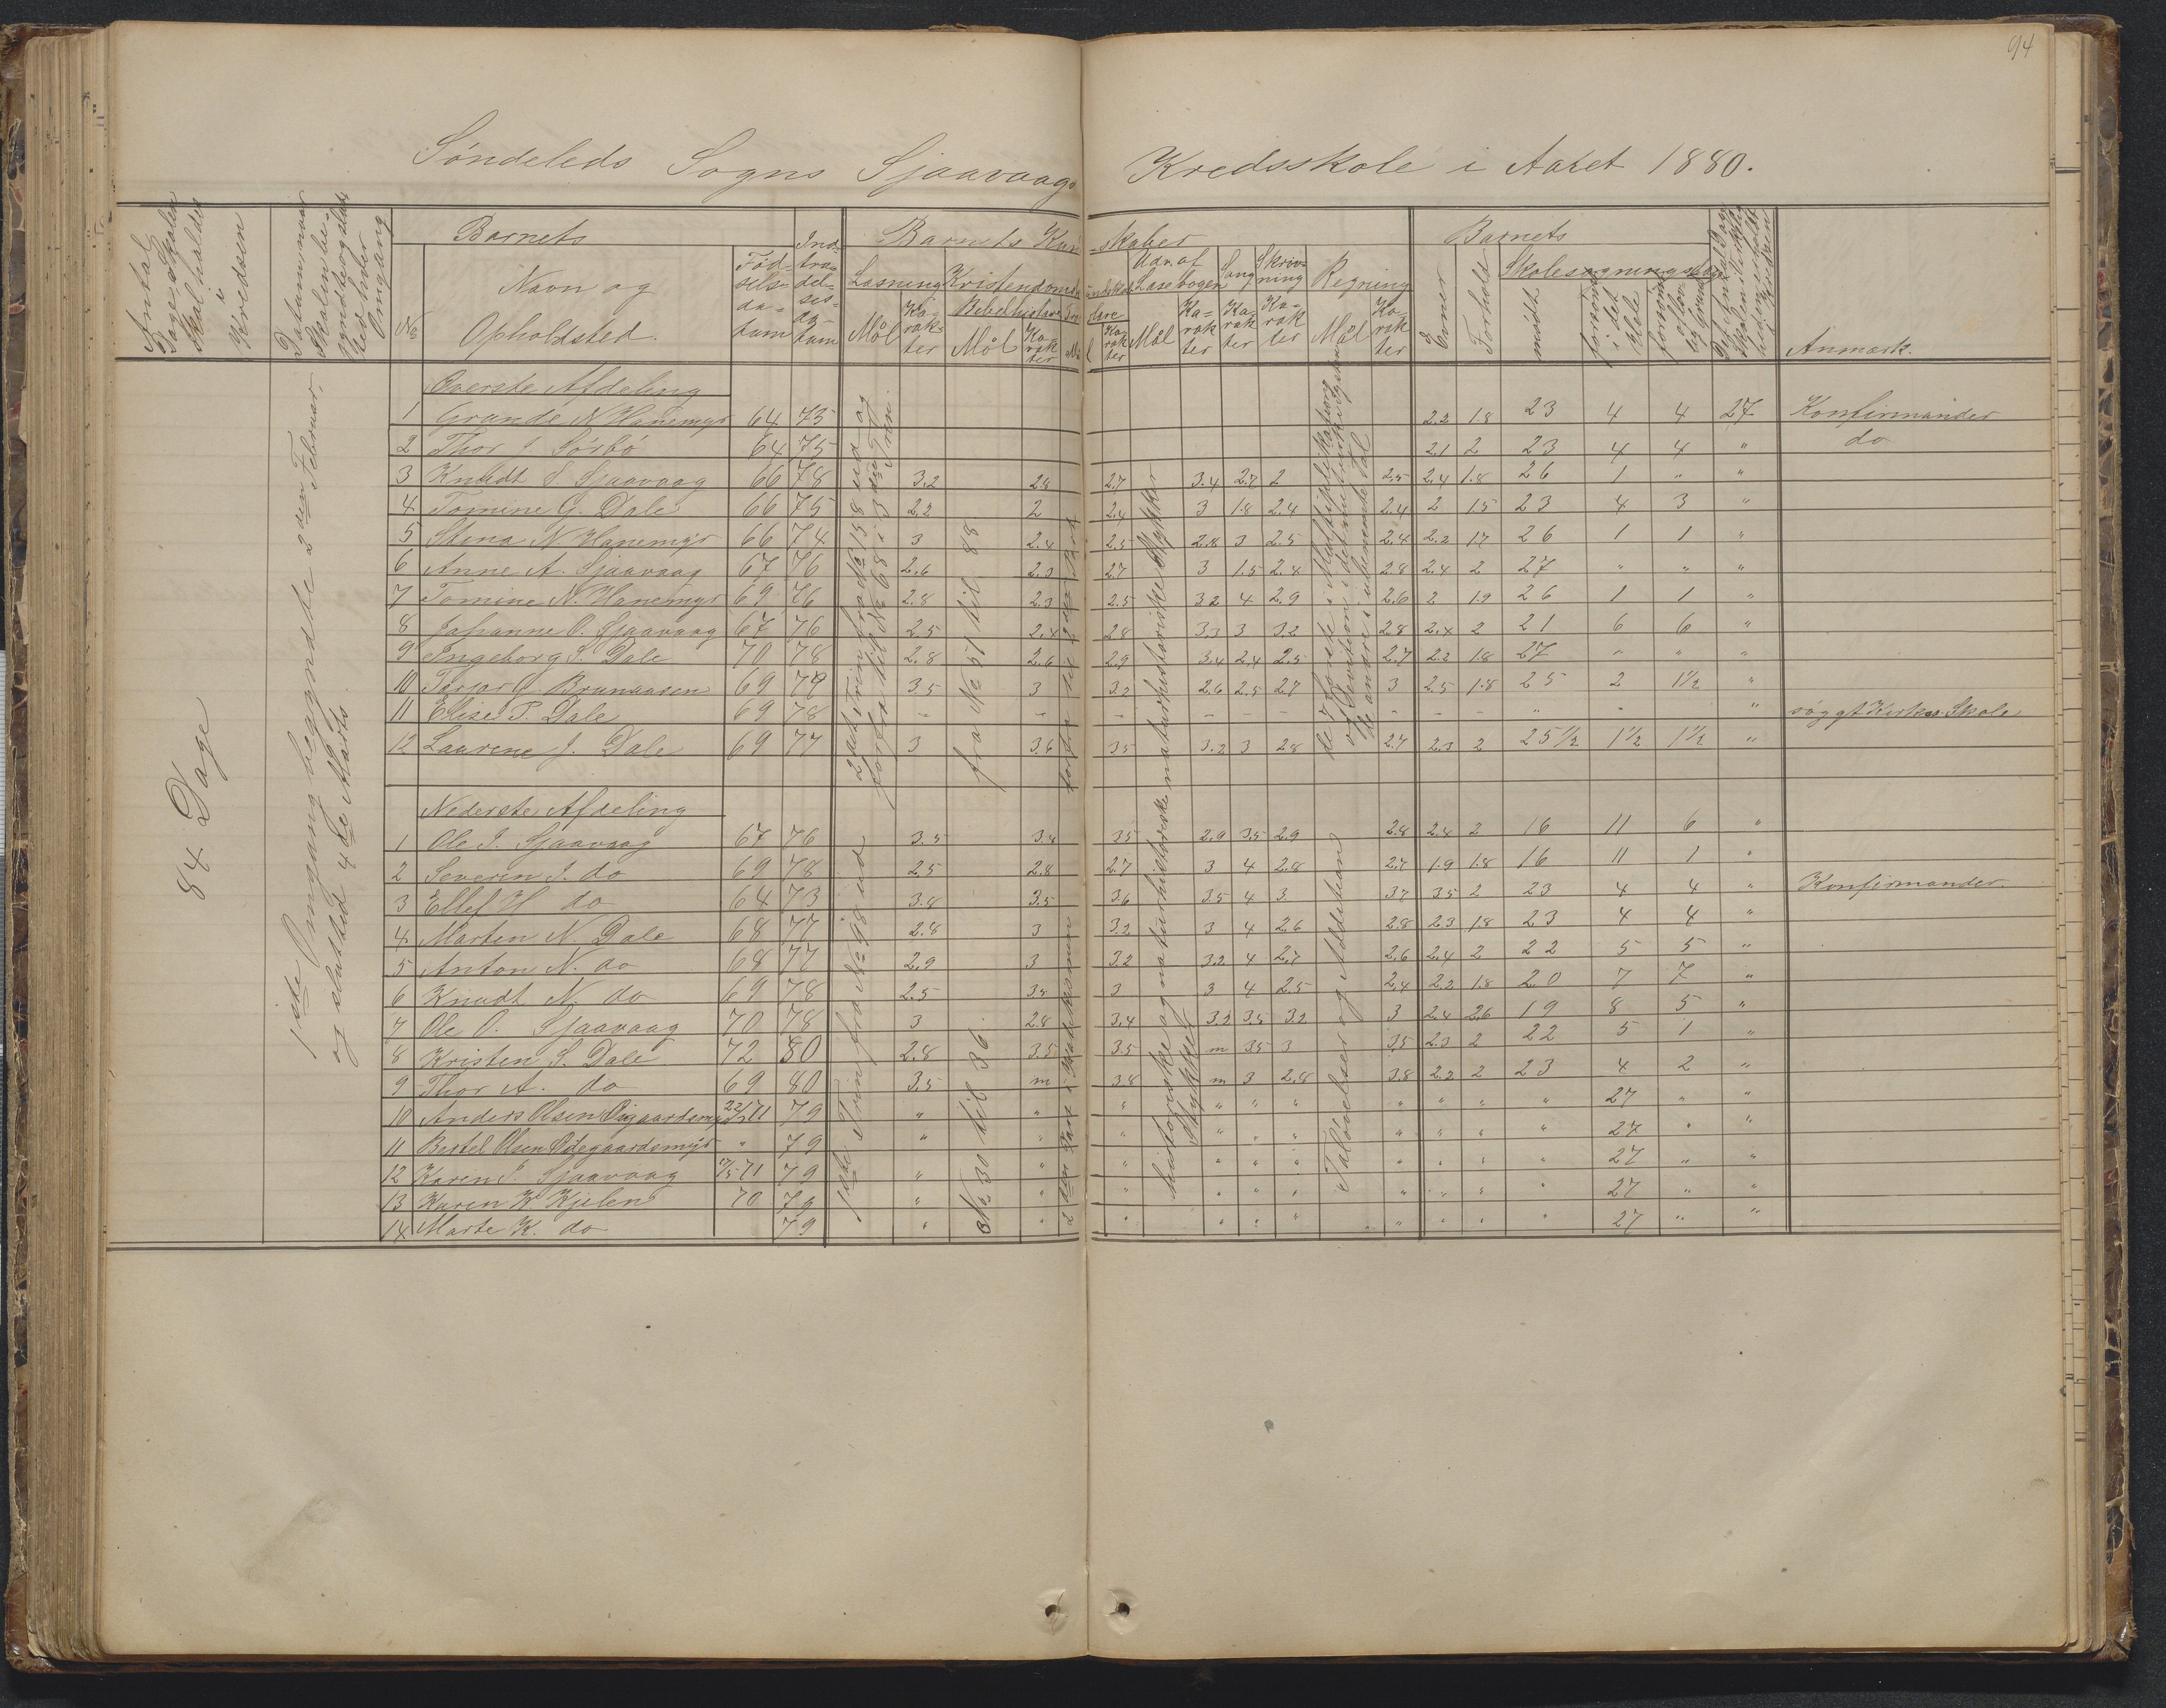 94
Søndeleds Sogns Sjaavaags Kredsskole i Aaret 1880.
Antal Dage Skolen skal holdes i Kredsen
Datum naar Skolen begyndte og slutted hver Omgang
Barnets
No
Navn og Opholdsted.
Fødselsdatum
Indtrædelsesdatum
Barnets Kundskaber
Læsning
Kristendomskundskab
Bibelhistorie
Udv. af Læsebogen
Sang
Skrivning
Regning
Mål
Karakter
Mål
Karakter
Karakter
Mål
Karakter
Karakter
Karakter
Mål
Karakter
Barnets
Evner
Forhold
Skolesøgningsdage
mødt
forsømt i det hele
forsømt af lovlig Grund
Anmærk.
84 Dage
1ste Omgang begyndte 2den Februar,
og slutted 4de Marts
Øverste Afdeling
1 Grunde N Hanemyr 64 75 2.2 1.8 23 4 4 27 Konfirmander
2 Thor J Sørbø 64 75 2.1 2 23 4 4 " do
3 Knudt S Sjaavaag 66 78 3.2 2.8 2.7 3.4 2.7 2 2.5 2.4 1.8 26 1 " "
4 Tomine G. Dale 66 75 2.2 2 2.4 3 1.8 2.4 2.4 2 1.5 23 4 3 "
5 Stina N Hanemyr 66 74 3 2.4 2.5 2.8 3 2.5 2.4 2.2 1.7 26 1 1 "
6 Anne A. Sjaavaag 67 76 2.6 2.3 2.7 3 1.5 2.4 2.8 2.4 2 27 " " "
7 Tomine N. Hanemyr 69 76 2.8 2.3 2.5 3.2 4 2.9 2.6 2 1.9 26 1 1 "
8 Johanne O. Sjaavaag 67 76 2.5 2.4 2.8 3.3 3 3.2 2.8 2.4 2 21 6 6 "
9 Ingeborg S. Dale 70 78 2.8 2.6 2.9 3.4 2.4 2.5 2.7 2.2 1.8 27 " " "
10 Torjor J. Brunaasen 69 79 3.5 3 3.2 2.6 2.5 2.7 3 2.5 1.8 25 2 1½ "
11 Elise T. Dale 69 78 - - - - - - - - - " " " søggt Kirkes. Skole
12 Laurine J. Dale 69 77 3 3.6 3.5 3.2 3 2.8 2.7 2.3 2 25½ 1½ 1½ "
fra No 51 til 88.
Nederste Afdeling
1 Ole J. Sjaavaag 67 76 3.5 3.8 3.5 2.9 3.5 2.9 2.8 2.4 2 16 11 6 "
2 Severin J. do 69 78 2.5 2.8 2.7 3 4 2.8 2.7 1.9 1.8 16 11 1 "
3 Ellef H do 64 73 3.8 3.5 3.6 3.5 4 3 3.7 3.5 2 23 4 4 " Konfirmander.
4 Marten N. Dale 68 77 2.8 3 3.2 3 4 2.6 2.8 2.3 1.8 23 4 4 "
5 Anton N. do 68 77 2.9 3 3.2 3.2 4 2.7 2.6 2.4 2 22 5 5 "
6 Knudt N. do 69 78 2.5 3.5 3 3 4 2.5 2.4 2.2 1.8 20 7 7 "
7 Ole O. Sjaavaag 70 78 3 2.8 3.4 3.2 3.5 3.2 3 2.4 2.6 19 8 5 "
8 Kristen S. Dale 72 80 2.8 3.5 3.5 m 3.5 3 3.5 2.3 2 22 5 1 "
9 Thor A. do 69 80 3.5 m 3.8 m 3 2.8 3.8 2.2 2 23 4 2 "
10 Anders Olsen 71 79 " " " " " " " " " " 27 " "
11 Bertel Olsen Ødegaardsmyr " 79 " " " " " " " " " " 27 " "
12 Karen J. Sjaavaag 71 79 " " " " " " " " " " 27 " "
13 Karen K Kjelen 70 79 " " " " " " " " " " 27 " "
14 Marte K. do 79 " " " " " " " " " " 27 " "
No 30 til 36.
historiske og naturhistoriske Stykker
Taløvelser og Addition